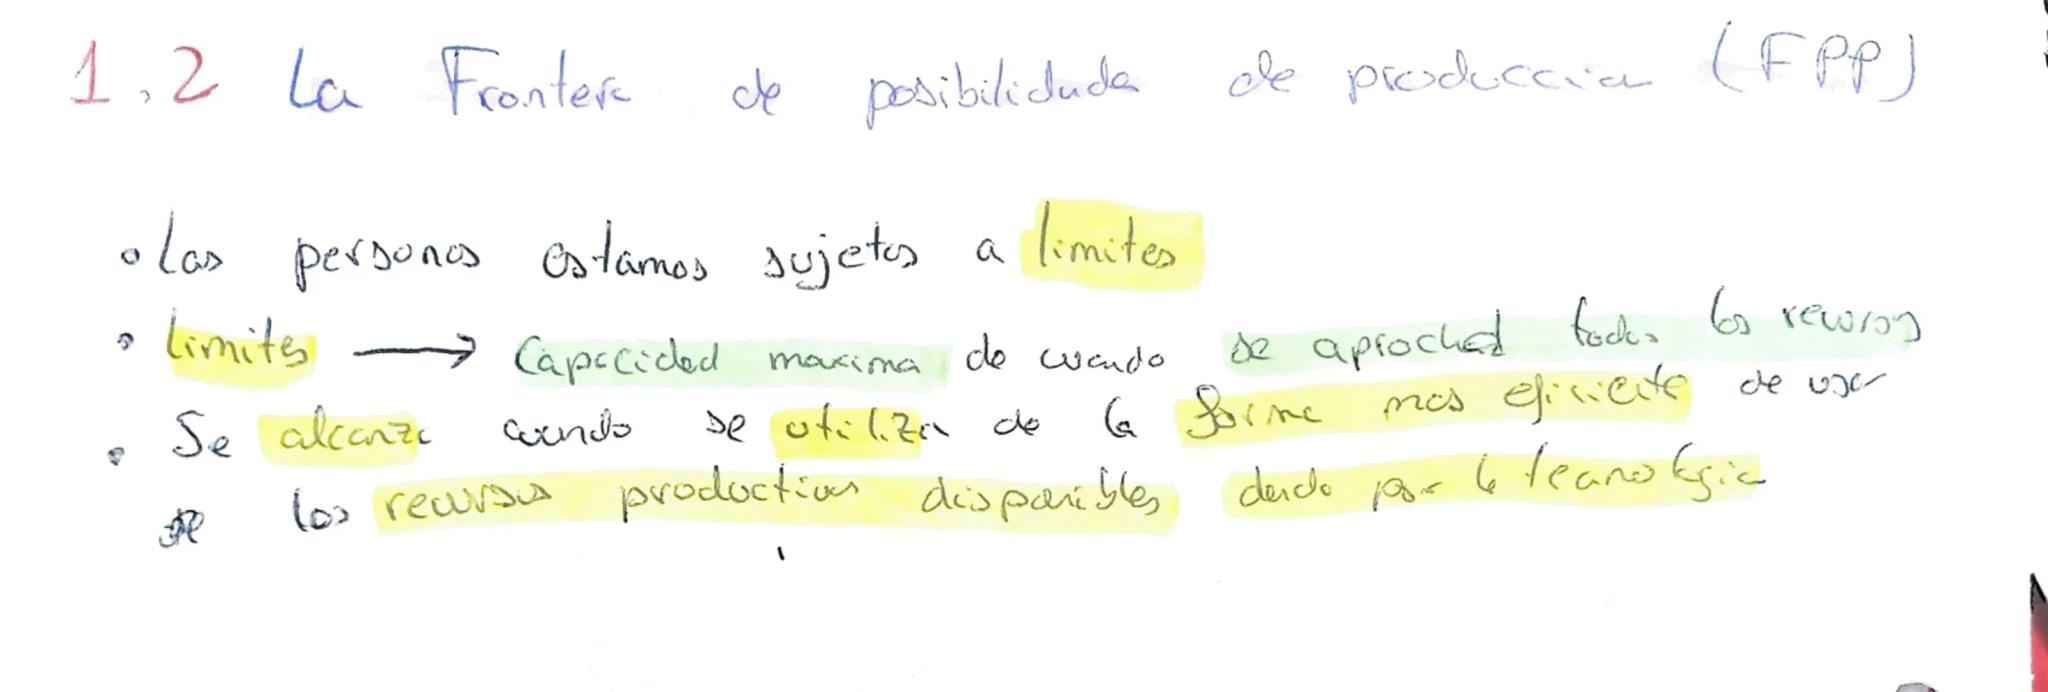 1.2 La Frontera de posibilidades de produccion (FPP)
• Las personas estamos sujetos a limites
• limites → Capacidad maxima de cuando se aprochad todos los recursos
• Se alcanza cuando se utiliza de la forma mas eficiente de usar
los recursos productivos disponibles dado por la tecnologia